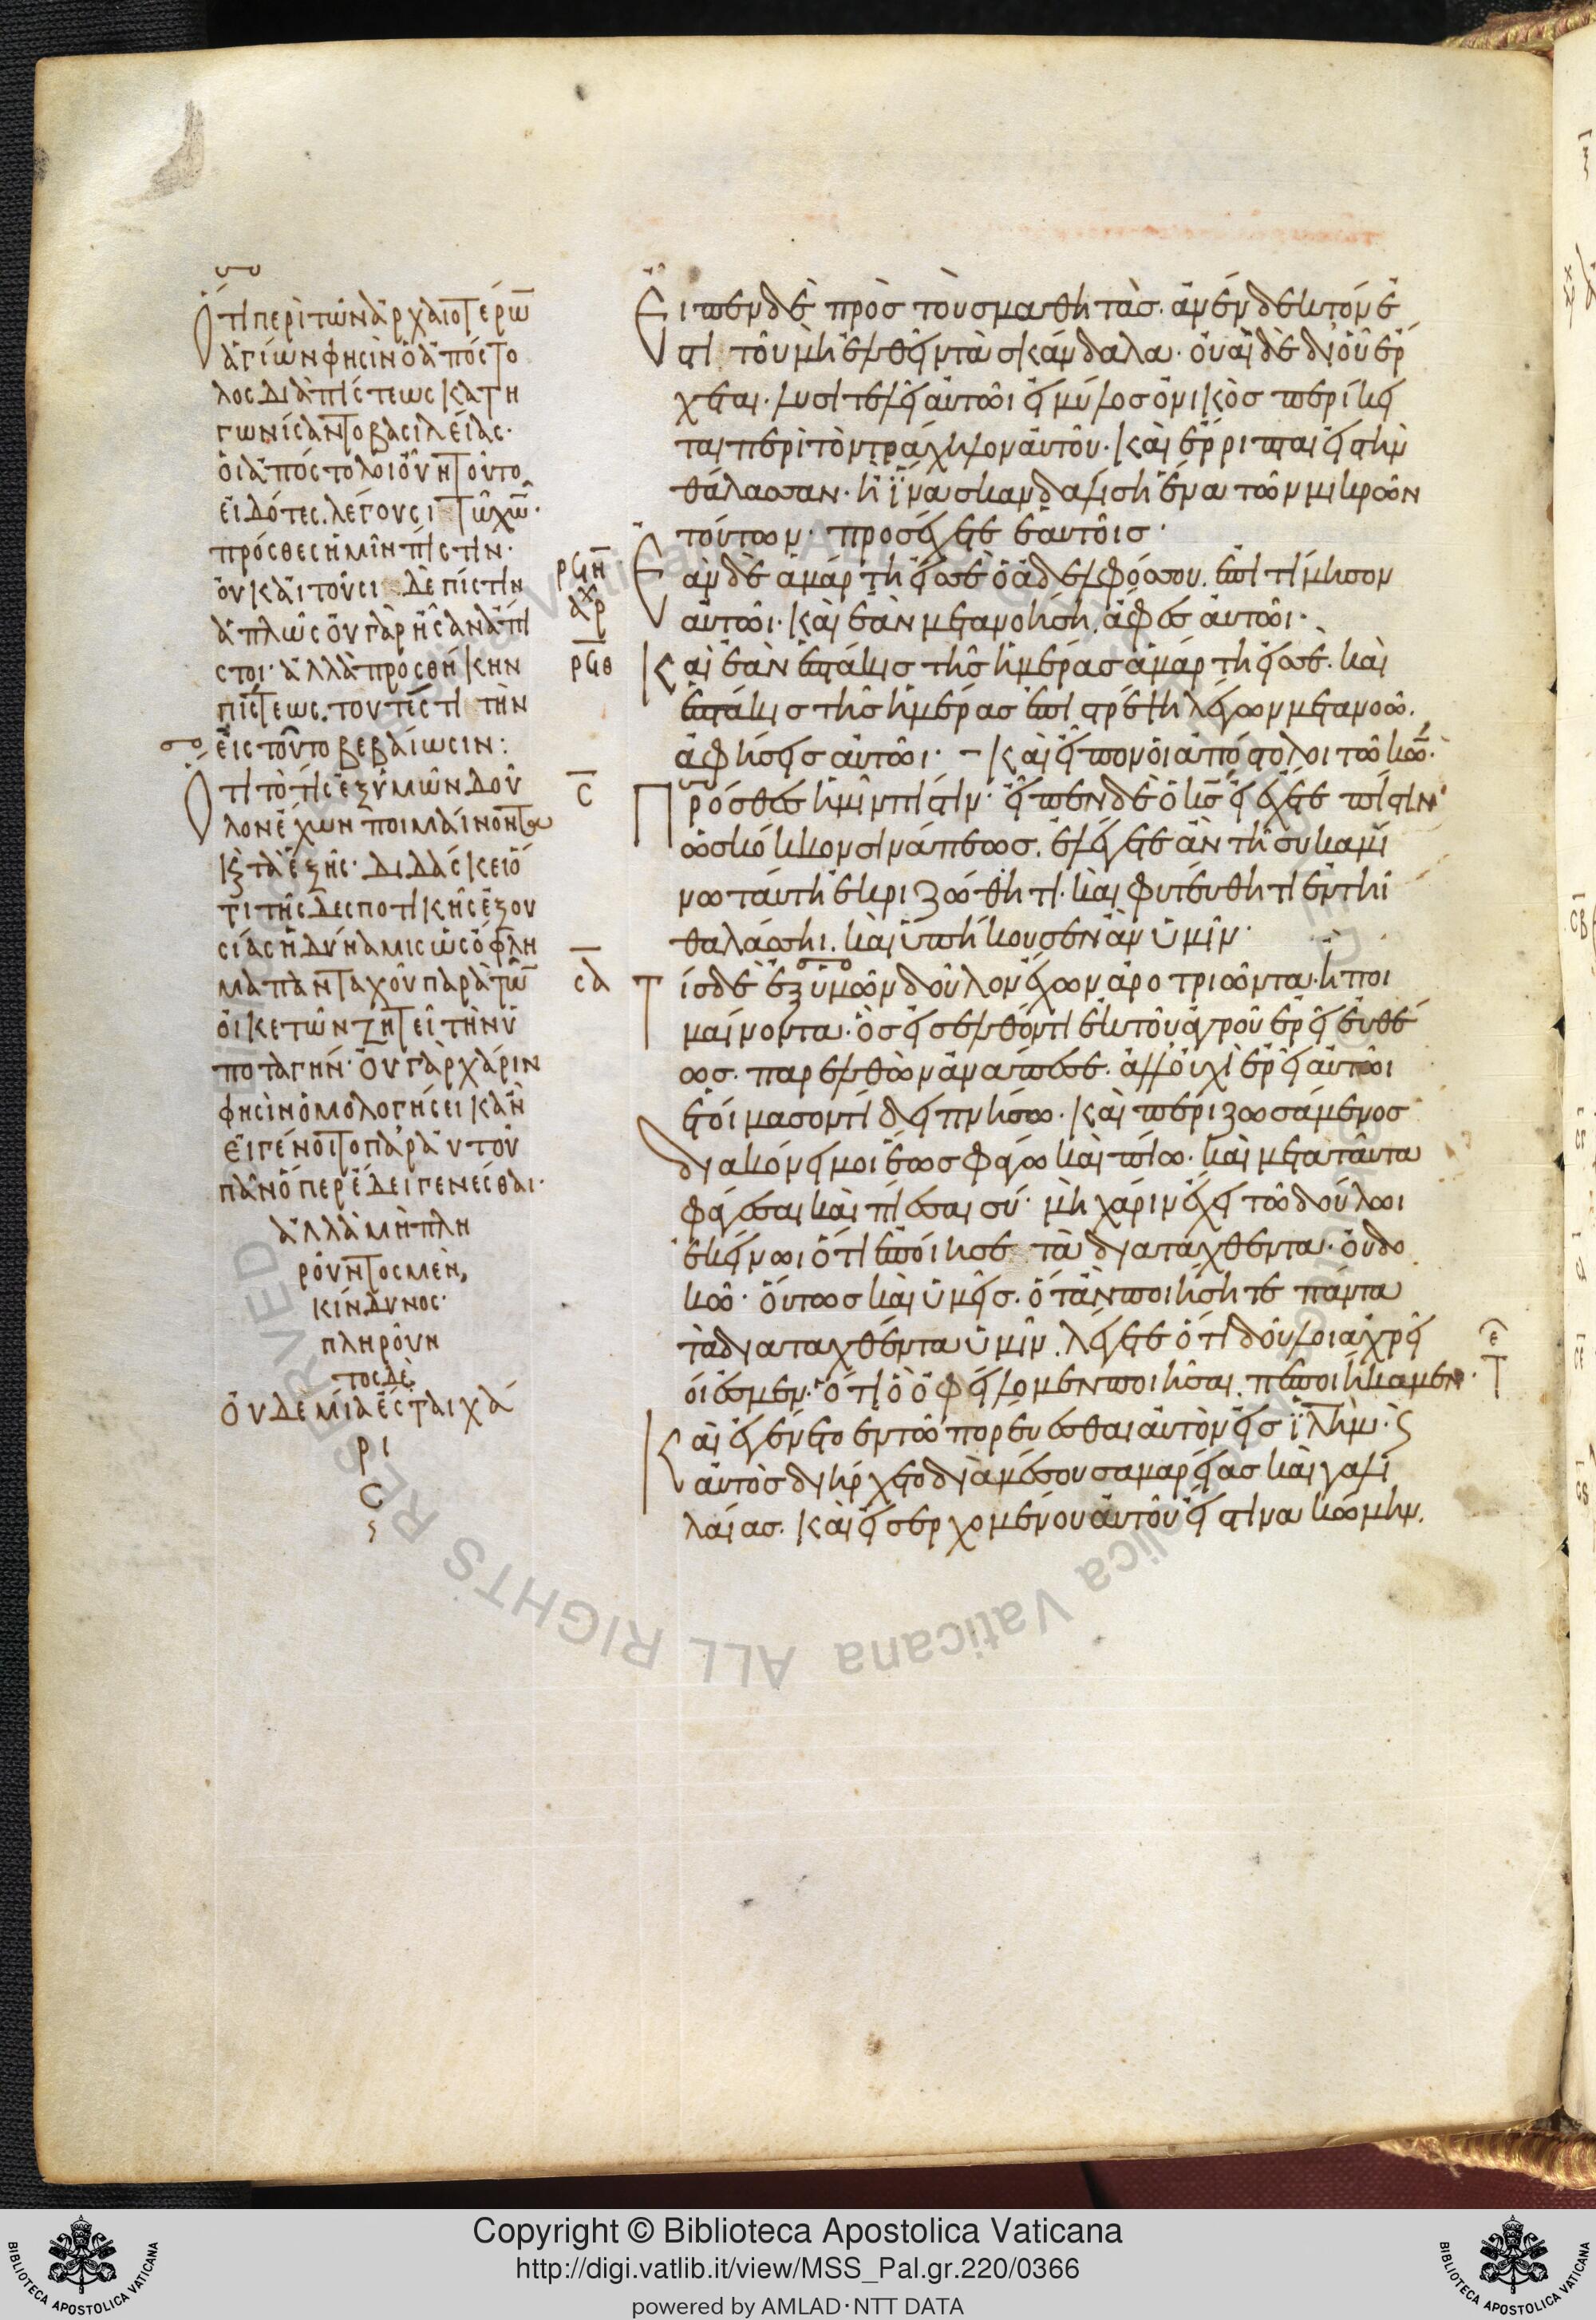 Ὅτι περὶ τῶν ἀρχαιοτέρω̅
ἁγίων φησὶν ὁ ἀπόστο
λος διὰ πίστεως κατη
γωνίσαντο βασιλείας·
οἱ ἀπόστολοι οὖν τοῦτο
εἰδότες. λέγουσι τῶ χω̅·
πρόσθες ἡμῖν πίστιν·
οὐκ αἰτοῦσι δὲ πίστιν
ἁπλῶς οὐ γὰρ ἦσαν ἄπι
στοι· ἀλλὰ προσθήκην
πίστεως. τουτέστι τὴν
εἰς τοῦτο βεβαίωσιν:
Ὅτι τὸ τίς ἐξ ὑμῶν δοῦ
λον ἔχων ποιμαίνοντα
κ̣ τὰ ἑξῆς· διδάσκει ὅ
τι τῆς δεσποτικῆς ἐξου
σίας ἡ δύναμις ὡς ὄφλη
μα πανταχοῦ παρὰ τῶ̅
οἰκετῶν ζητεῖ τὴν ὑ
ποταγήν· οὐ γὰρ χάριν
φησὶν ὁμολογήσει κἂν
εἰ γένοιτο παρ' αὐτοῦ
πᾶν ὅπερ ἔδει γενέσθαι·
ἀλλὰ μὴ πλη
ροῦντος μὲν,
κίνδυνος·
πληροῦν
τος δὲ
οὐδεμία ἔσται χά
ρι
ς
Εἶπεν δὲ πρὸς τοὺς μαθητάς· ἀνένδεκτόν ἐ
στι τοῦ μὴ ἐλθεῖν τὰ σκάνδαλα· οὐαὶ δὲ δι' οὗ ἔρ
χεται· λυσιτελεῖ αὐτῶι εἰ μύλος ὀνικὸς περίκει
ται περὶ τὸν τράχηλον αὐτοῦ· καὶ ἔρριπται εἰς τὴν
θάλασσαν· ἢ ἵνα σκανδαλίση ἕνα τῶν μικρῶν
τούτων· προσέχετε ἑαυτοῖς·
ρϟη Ἐὰν δὲ ἁμάρτη εἰς σὲ ὁ ἀδελφός σου. ἐπιτίμησον
αὐτῶι· καὶ ἐὰν μετανοήση, ἄφες αὐτῶι·
ρϟθ Καὶ ἐὰν ἑπτάκις τῆς ἡμέρας ἁμάρτη εἰς σὲ· καὶ
ἑπτάκις τῆς ἡμέρας ἐπιστρέψη λέγων μετανοῶ.
ἀφήσεις αὐτῶι· – Καὶ εἶπον οἱ ἀπόστολοι τῶ κω̅·
σ̅ Πρόσθες ἡμῖν πίστιν· εἶπεν δὲ ὁ κς̅ εἰ ἔχετε πίστιν
ὡς κόκκον σινάπεως. ἐλέγετε ἂν τῆ συκαμί
νω ταύτη ἐκριζώθητι· καὶ φυτεύθητι ἐν τῆι
θαλάσσηι. καὶ ὑπήκουσεν ἂν ὑμῖν·
σα Τίς δὲ ἐξ ὑμῶν δοῦλον ἔχων ἀροτριῶντα· ἢ ποι
μαίνοντα· ὃς εἰσελθόντι ἐκ τοῦ ἀγροῦ ἐρεῖ εὐθέ
ως. παρελθὼν ἀνάπεσε· ἀλλ' οὐχὶ ἐρεῖ αὐτῶι
ἑτοίμασον τί δειπνήσω· καὶ περιζωσάμενος
διακόνει μοι ἕως φάγω καὶ πίω. καὶ μετὰ ταῦτα
φάγεσαι καὶ πίεσαι σύ· μὴ χάριν ἔχει τῶ δούλωι
ἐκείνωι ὅτι ἐποίησε τὰ διαταχθέντα· οὐ δο
κῶ· οὕτως καὶ ὑμεῖς. ὅταν ποιήσητε πάντα
τὰ διαταχθέντα ὑμῖν. λέγετε ὅτι δοῦλοι ἀχρεῖ
οί ἐσμεν· ὅτι ὃ ὀφείλομεν ποιῆσαι πεποιήκαμεν·
Καὶ ἐγένετο ἐν τῶ πορεύεσθαι αὐτὸν εἰς ϊλημ̅· ϛ
αὐτὸς διήρχετο διὰ μέσου σαμαρείας καὶ γαλι
λαίας. καὶ εἰσερχομένου αὐτοῦ εἴς τινα κώμην.
Copyright © Biblioteca Apostolica Vaticana
http://digi.vatlib.it/view/MSS_Pal.gr.220/0366
powered by AMLAD·NTT DATA
BIBLIOTECA APOSTOLICA VATICANA
BIBLIOTECA APOSTOLICA VATICANA